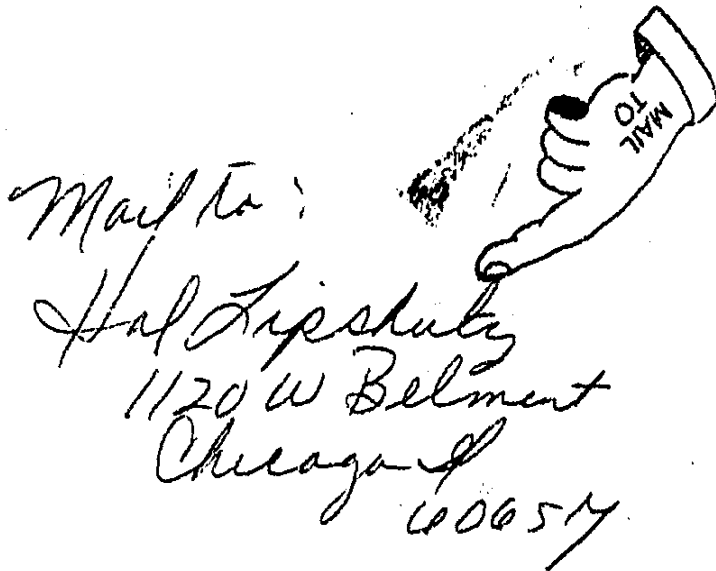 MAIL
TO
Mail to:
Hal Lipshutz
1120 W Belmont
Chicago Il
60657